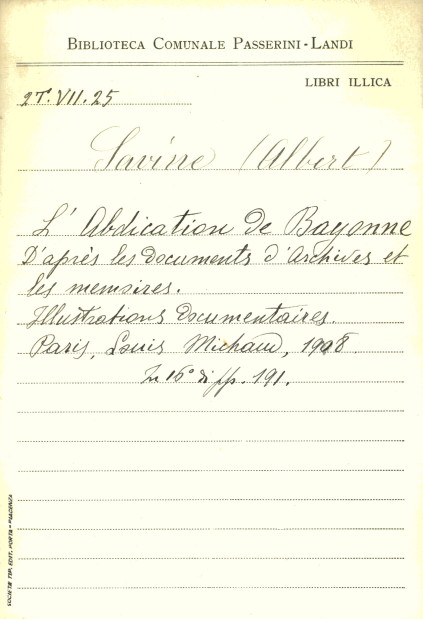 BIBLIOTECA COMUNALE PASSERINI-LANDI
LIBRI ILLICA
2T.VII.25
Savine (Albert)
L'Abdication de Bayonne
D'après les documents d'Archives et
les memoires.
Illustrations documentaires.
Paris, Louis Michaud, 1908.
In 16° di pp. 191.
SOCIETÀ TIP. EDIT. PORTA - PIACENZA